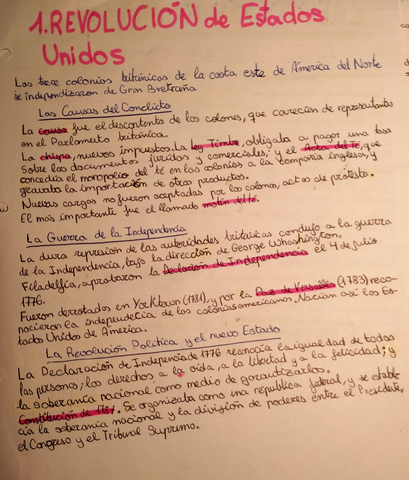 1. REVOLUCIÓN de Estados
Unidos
Las trece colonias británicas de la costa este de América del Norte
se independizaron de Gran Bretaña
Las Causas del Conclicto
La causa fue el descontento de los colones, que carecían de representantes
en el Parlamento británica.
La chispa, nuevos impuestos. La ley Timbre, obligaba a pagar una tasa
sobre los documentos jurídos y comerciales, y el Acta del Té, que
concedía el monopolio del té en las colonias a la compañía inglesa, y
gravaba la importación de otros productos.
Nuevas cargas no fueron aceptadas por los colonos, actos de protesta.
El más importante fue el llamado motín del té.
La Guerra de la Independencia
La dura represión de las autoridades británicas condujo a la guerra
de la Independencia, bajo la dirección de George Whashington.
Filadelfia, aprobaron la Declaración de Independencia el 4 de julio
1776.
Fueron derrotados en Yorktown (1781), y por la Paz de Versalles (1783) reco-
nocieron la independecia de los colonias americanos. Nacían así los Es-
tados Unidos de America.
La Revolución Política y el nuevo Estado
La Declaración de Independencia de 1776 reconocía la igualdad de todas
las personas, los derechos a la vida, a la libertad y a la felicidad; y
la soberanía nacional como medio de garantizarlos.
Constitución de 1787. Se organizaba como una república federal, y se estable
cía la soberanía nacional y la división de poderes entre el Presidente,
el Congreso y el Tribunal Supremo.